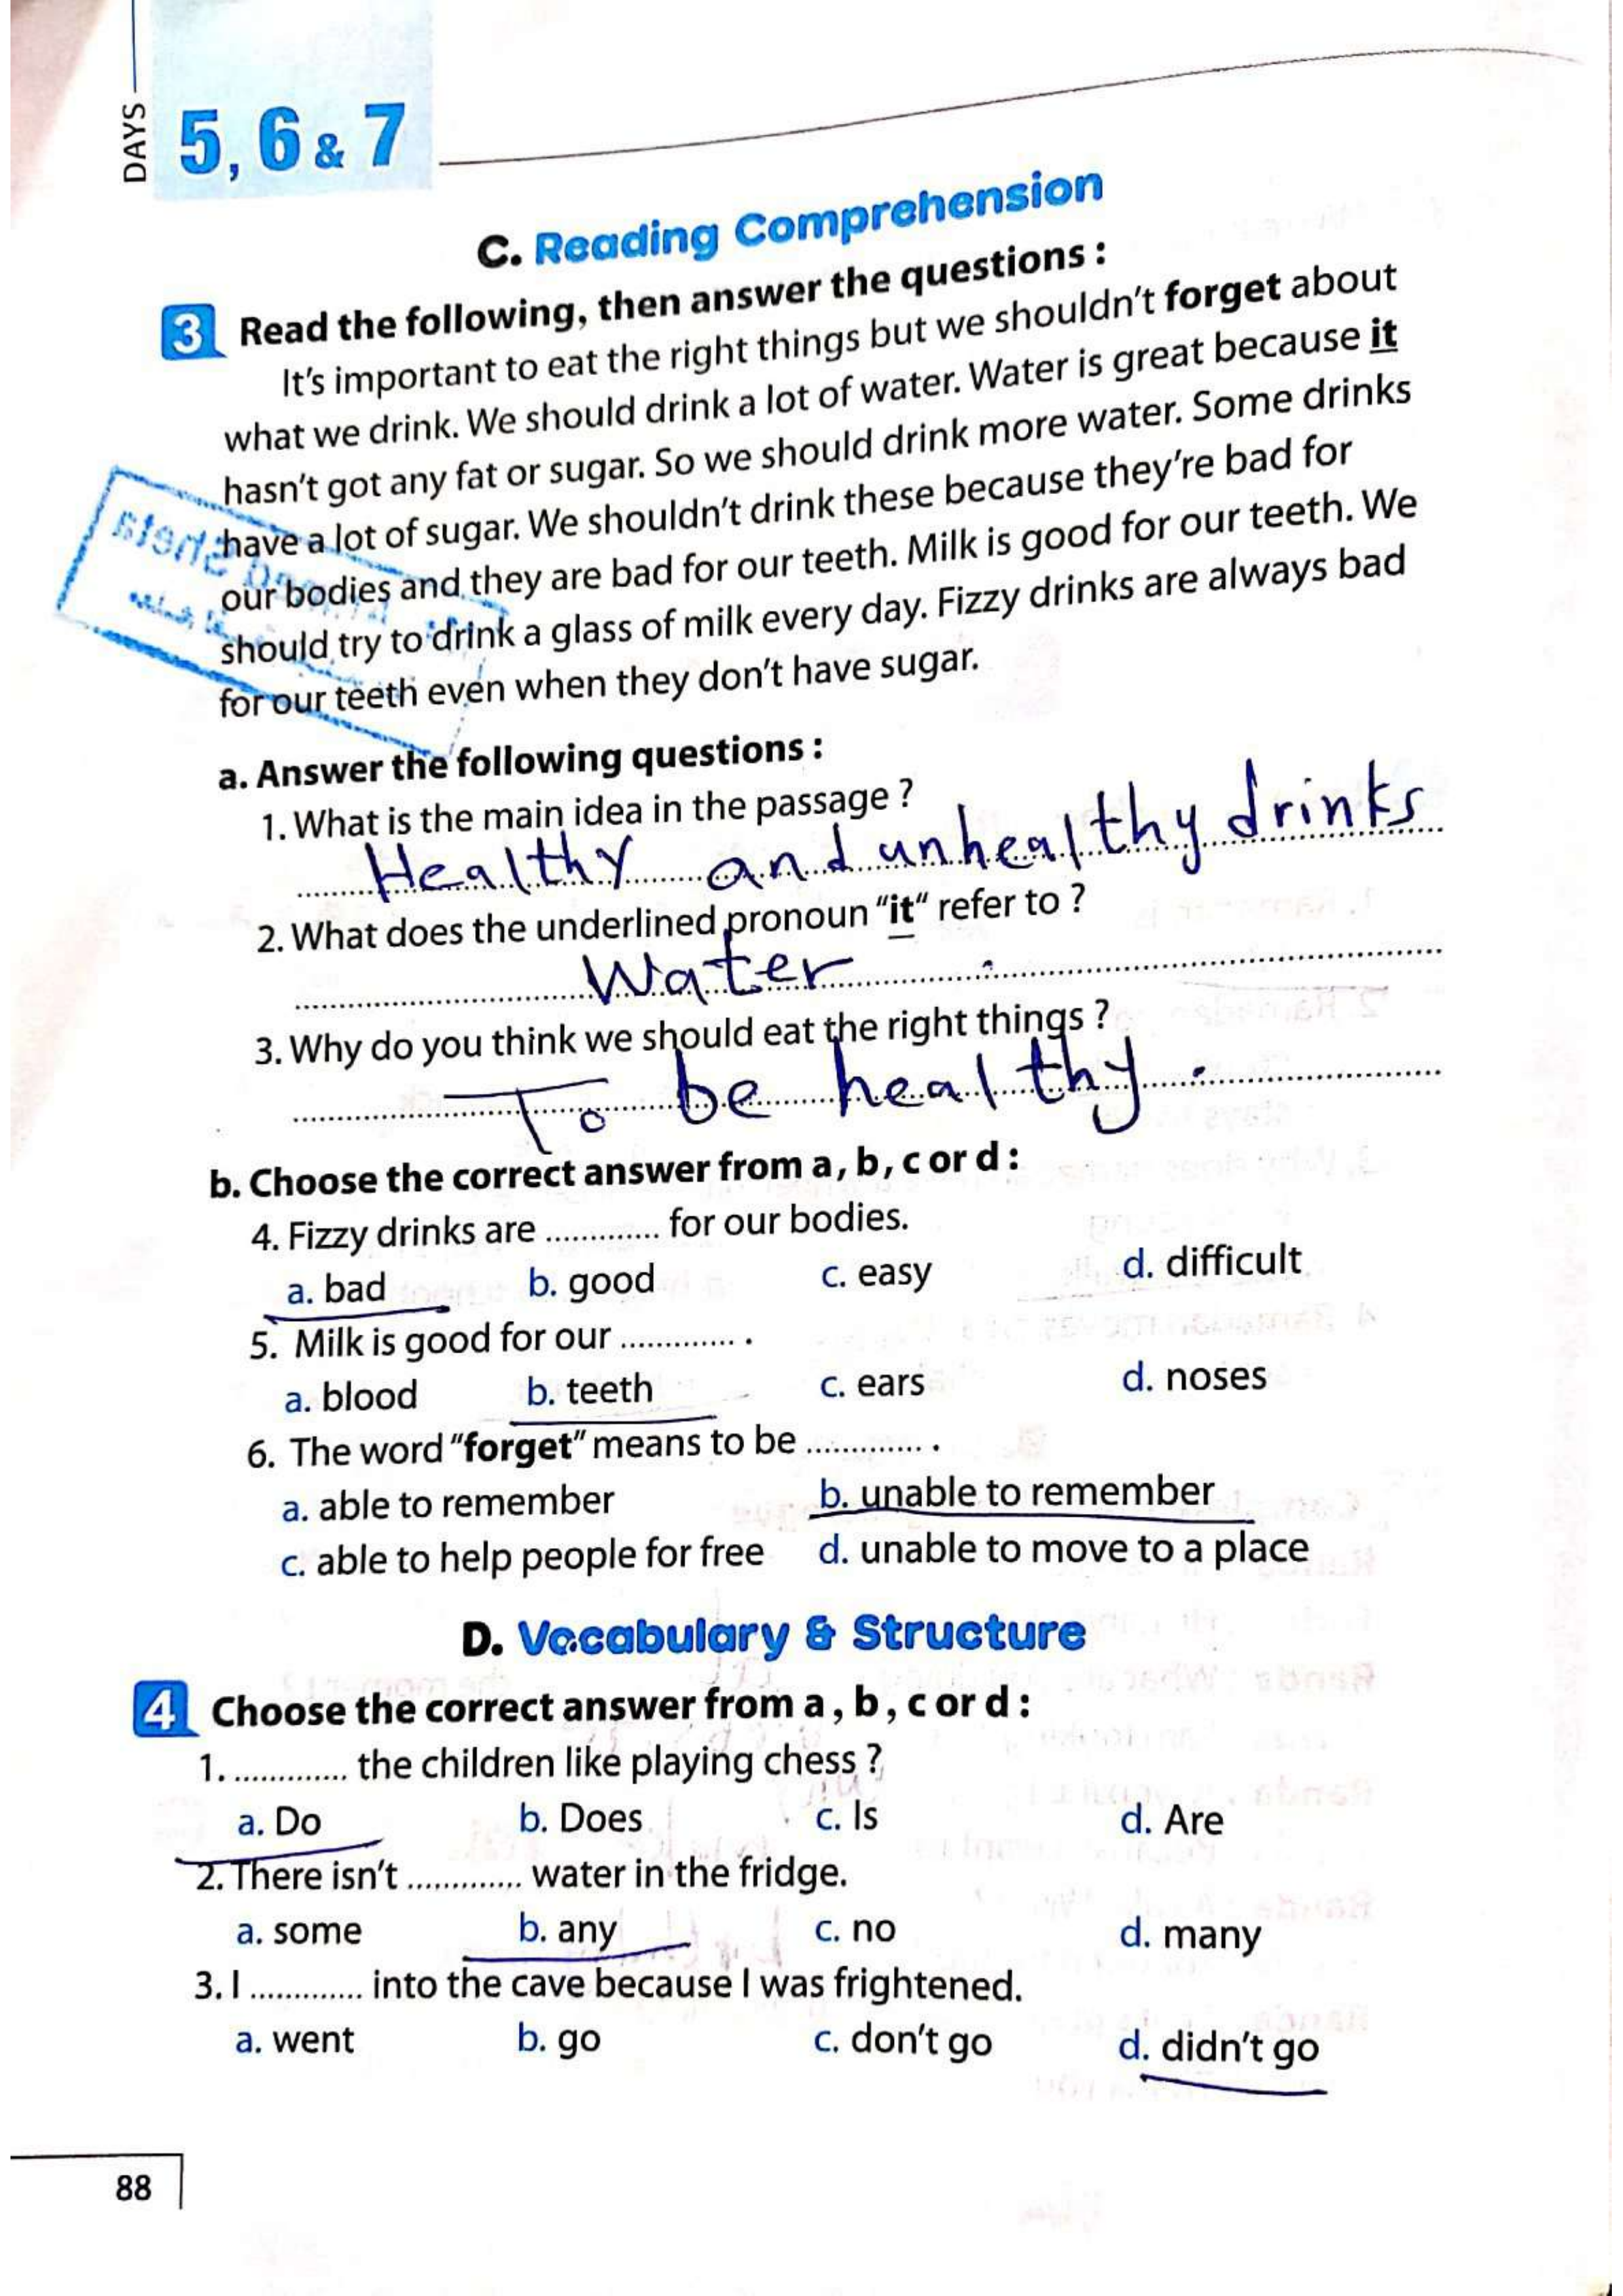 DAYS
5, 6 & 7
C. Reading Comprehension
3 Read the following, then answer the questions :
It's important to eat the right things but we shouldn't forget about
what we drink. We should drink a lot of water. Water is great because it
hasn't got any fat or sugar. So we should drink more water. Some drinks
have a lot of sugar. We shouldn't drink these because they're bad for
our bodies and they are bad for our teeth. Milk is good for our teeth. We
should try to drink a glass of milk every day. Fizzy drinks are always bad
for our teeth even when they don't have sugar.
a. Answer the following questions :
1. What is the main idea in the passage ?
Healthy and unhealthy drinks
2. What does the underlined pronoun "it" refer to ?
Water .
3. Why do you think we should eat the right things ?
To be healthy .
b. Choose the correct answer from a, b, c or d :
4. Fizzy drinks are ............. for our bodies.
a. bad b. good c. easy d. difficult
5. Milk is good for our ............. .
a. blood b. teeth c. ears d. noses
6. The word "forget" means to be ............. .
a. able to remember b. unable to remember
c. able to help people for free d. unable to move to a place
D. Vocabulary & Structure
4 Choose the correct answer from a, b, c or d :
1. ............. the children like playing chess ?
a. Do b. Does c. Is d. Are
2. There isn't ............. water in the fridge.
a. some b. any c. no d. many
3. I ............. into the cave because I was frightened.
a. went b. go c. don't go d. didn't go
88